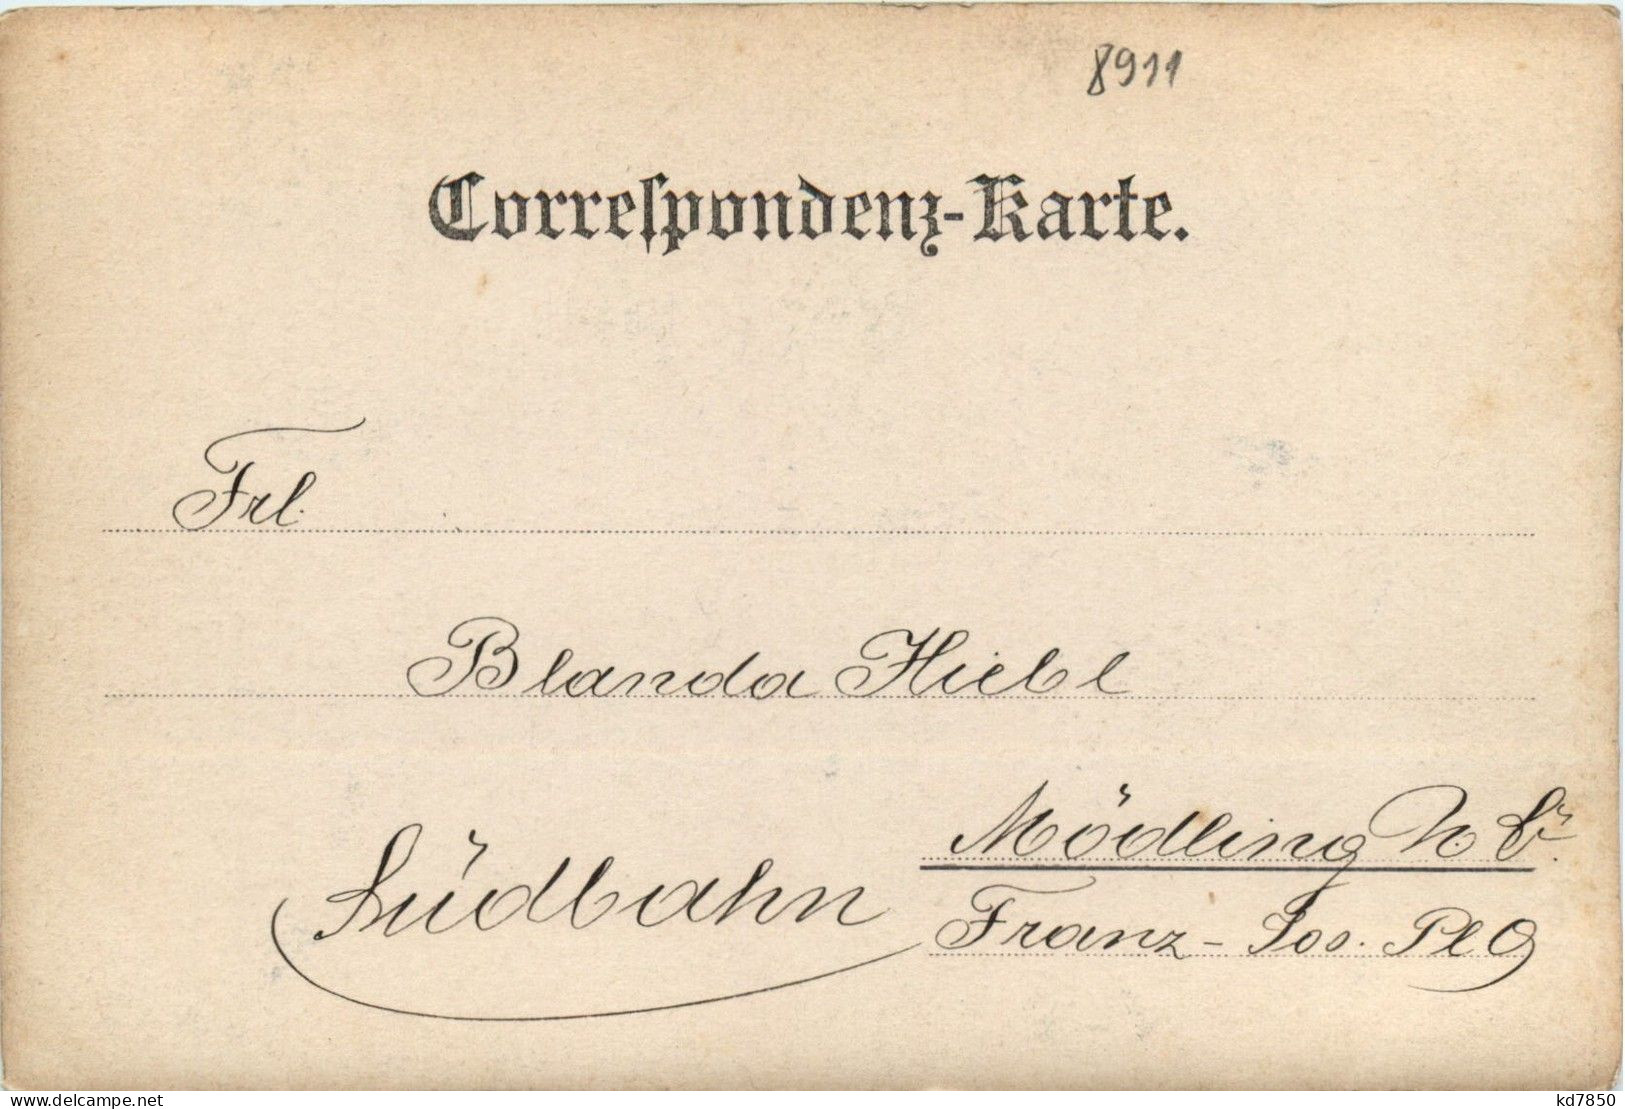 8911
Correſpondenz-Karte.
Frl.
Blanda Hiebl
Mödling N Ö.
Südbahn
Franz-Jos. Pl 9
delcampe.net
kd7850